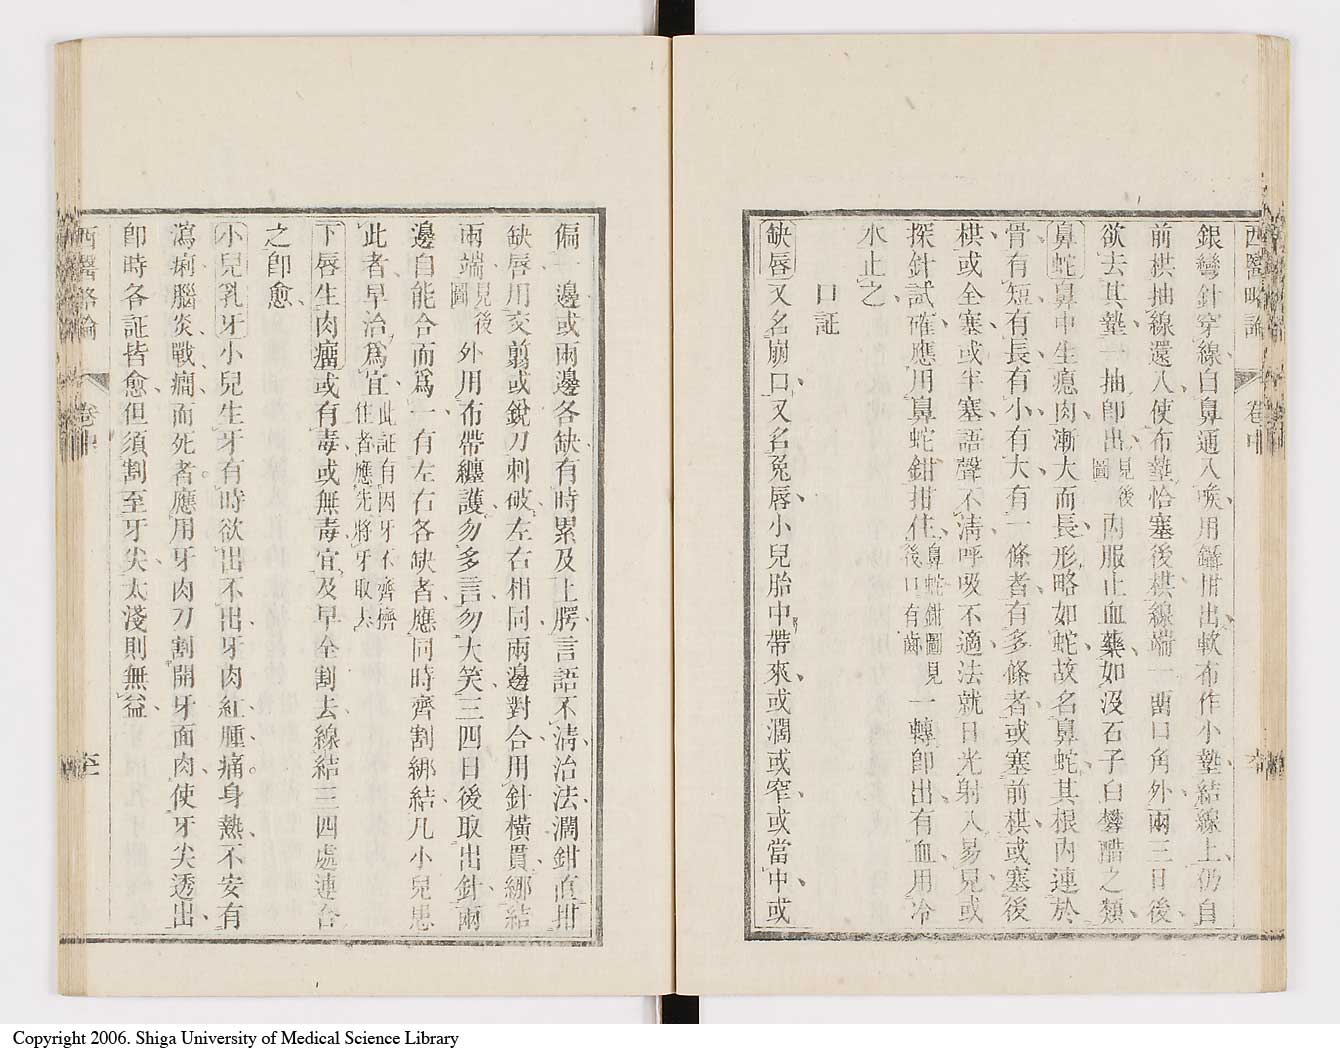 西醫略論 卷中
銀彎針穿線自鼻通入喉用鑷拑出軟布作小墊結線上仍自
前棋抽線還入使布墊恰塞後棋線端一留口角外兩三日後
欲去其墊一抽即出見後圖內服止血藥如沒石子白礬醋之類
鼻蛇鼻中生瘜肉漸大而長形略如蛇故名鼻蛇其根內連於
骨有短有長有小有大有一條者有多條者或塞前棋或塞後
棋或全塞或半塞語聲不清呼吸不適法就日光射入易見或
探針試確應用鼻蛇鉗拑住鼻蛇鉗圖見後口有齒一轉即出有血用冷
水止之
口証
缺唇又名崩口又名兔唇小兒胎中帶來或濶或窄或當中或
偏一邊或兩邊各缺有時累及上腭言語不清治法濶鉗直拑
缺唇用交剪或銳刀刺破左右相同兩邊對合用針橫貫綁結
兩端見後圖外用布帶纏護勿多言勿大笑三四日後取出針兩
邊自能合而爲一有左右各缺者應同時齊割綁結凡小兒患
此者早治爲宜此証有因牙不齊擠住者應先將牙取去
下唇生肉瘤或有毒或無毒宜及早全割去線結三四處連合
之即愈
小兒乳牙小兒生牙有時欲出不出牙肉紅腫痛身熱不安有
瀉痢腦炎戰癎而死者應用牙肉刀割開牙面肉使牙尖透出
即時各証皆愈但須割至牙尖太淺則無益
西醫略論 卷中
Copyright 2006. Shiga University of Medical Science Library